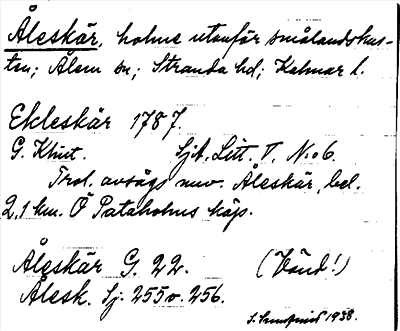 Åleskär, holme utanför smålandskus-
ten; Ålem sn; Stranda hd; Kalmar l.
Ekleskär 1787.
G. Klint. Sjk. Litt. V, No 6.
Trol. avsågs nuv. Åleskär, bel.
2,1 km. Ö Pataholms köp.
Åleskär G. 22. (Vänd!)
Ålesk. Sj. 255 o. 256.
1938.